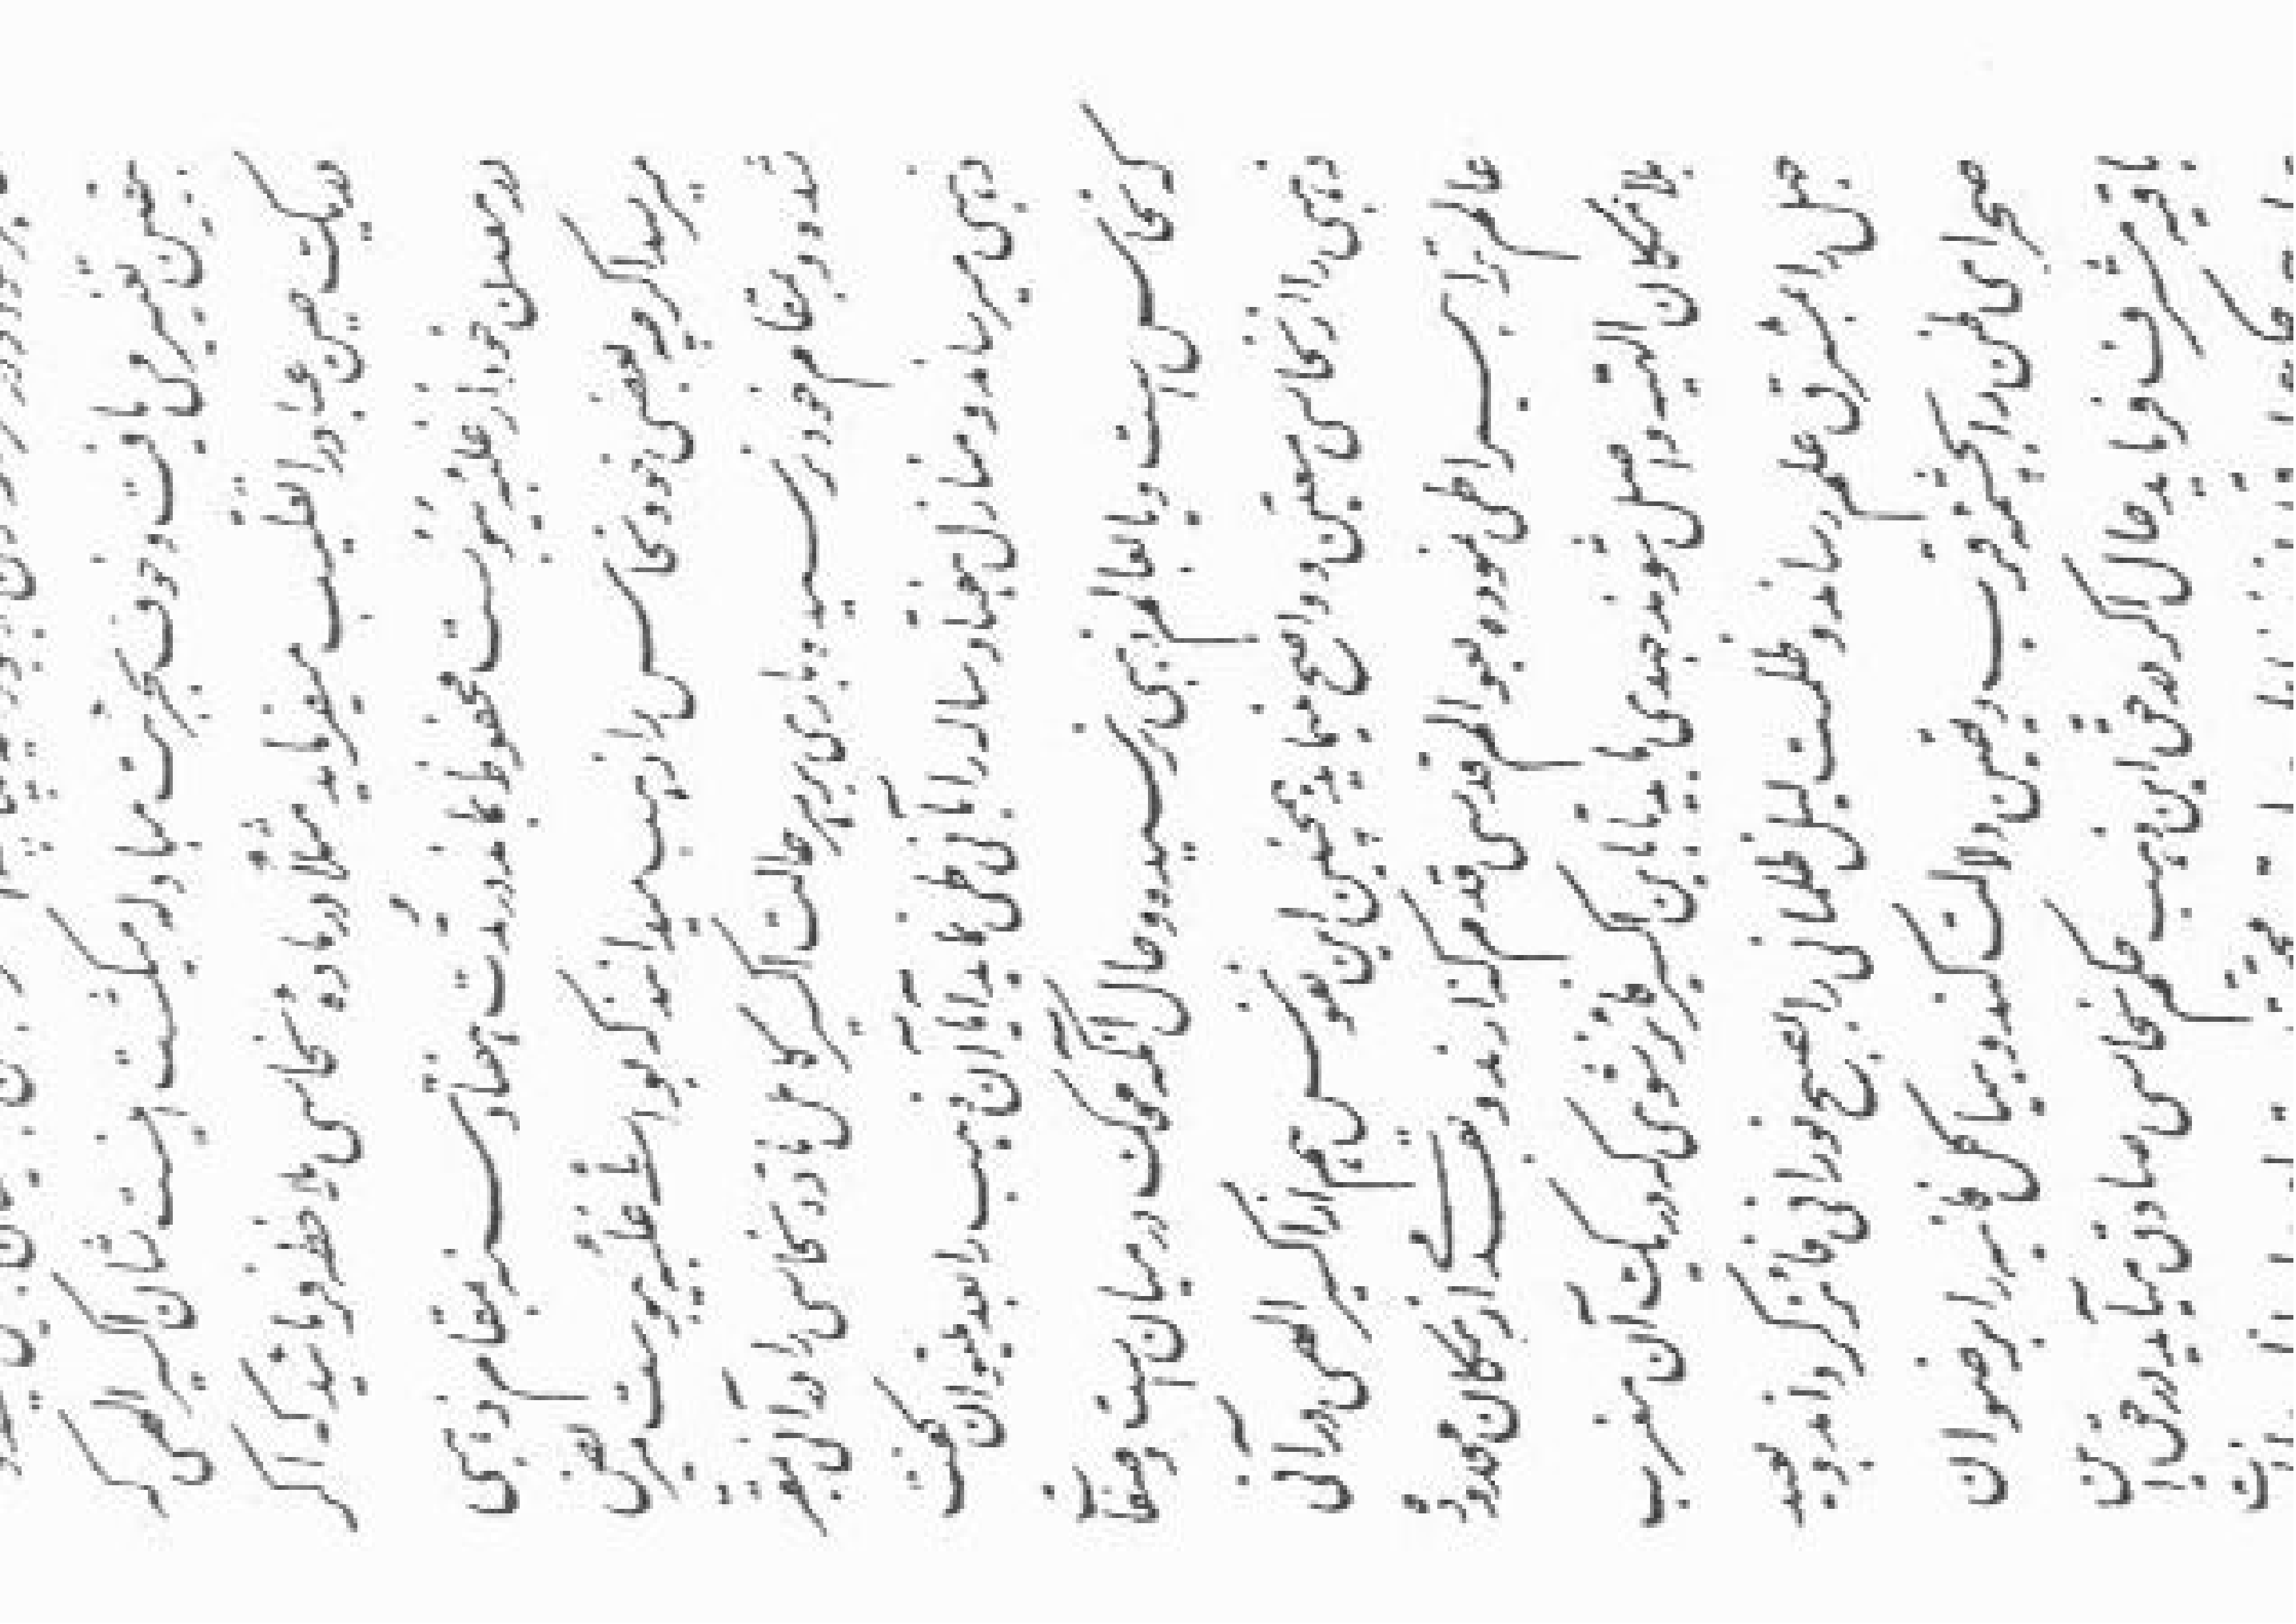 یقین تغییری یافت و خوف بجرئت مبادله گشت اینست شأن اکسیر الهی که
در یک حین عباد را تقلیب میفرماید مثلاً در مادهٔ نحاسی ملاحظه فرمائید که اگر
در معدن خود از غلبهٔ یبوست محفوظ بماند در مدّت هفتاد سنه بمقام ذهبی
میرسد اگرچه بعضی خود نحاس را ذهب میدانند که بواسطهٔ غلبهٔ یبوست مریض
شده و بمقام خود نرسیده و باری در هر حالت اکسیر کامل مادّهٔ نحاسی را در آنی بمقام
ذهبی میرساند و منازل هفتاد ساله را بآنی طی نماید آیا آن ذهب را بعد میتوان گفت
که نحاس است و یا بعالم ذهبی نرسیده و حال آنکه محک در میان است و صفات
ذهبی را از نحاسی معین و واضح مینماید همچنین این نفوس هم از اکسیر الهی در آنی
عالم ترابی را طی نموده بعوالم قدسی قدم گذارند و بقدمی از مکان محدود
بلامکان الهی واصل شوند جهدی باید تا باین اکسیر فائز شوی که در یک آن مغرب
جهل را بمشرق علم رساند و ظلمت لیل ظلمانی را بصبح نورانی فائز گرداند و بعید
صحرای ظن را بچشمهٔ قرب و یقین دلالت کند و هیاکل فانیه را برضوان
باقیه مشرف فرماید حال اگر در حق این ذهب حکم نحاسی صادق میآید در حق این